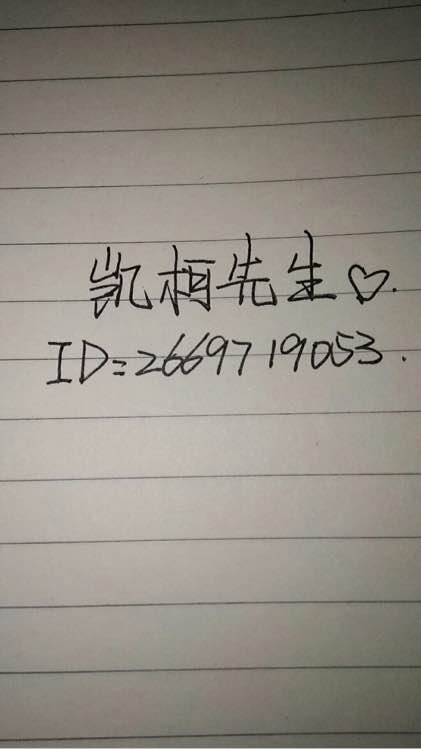 凯柯先生♡.
ID=2669719053.